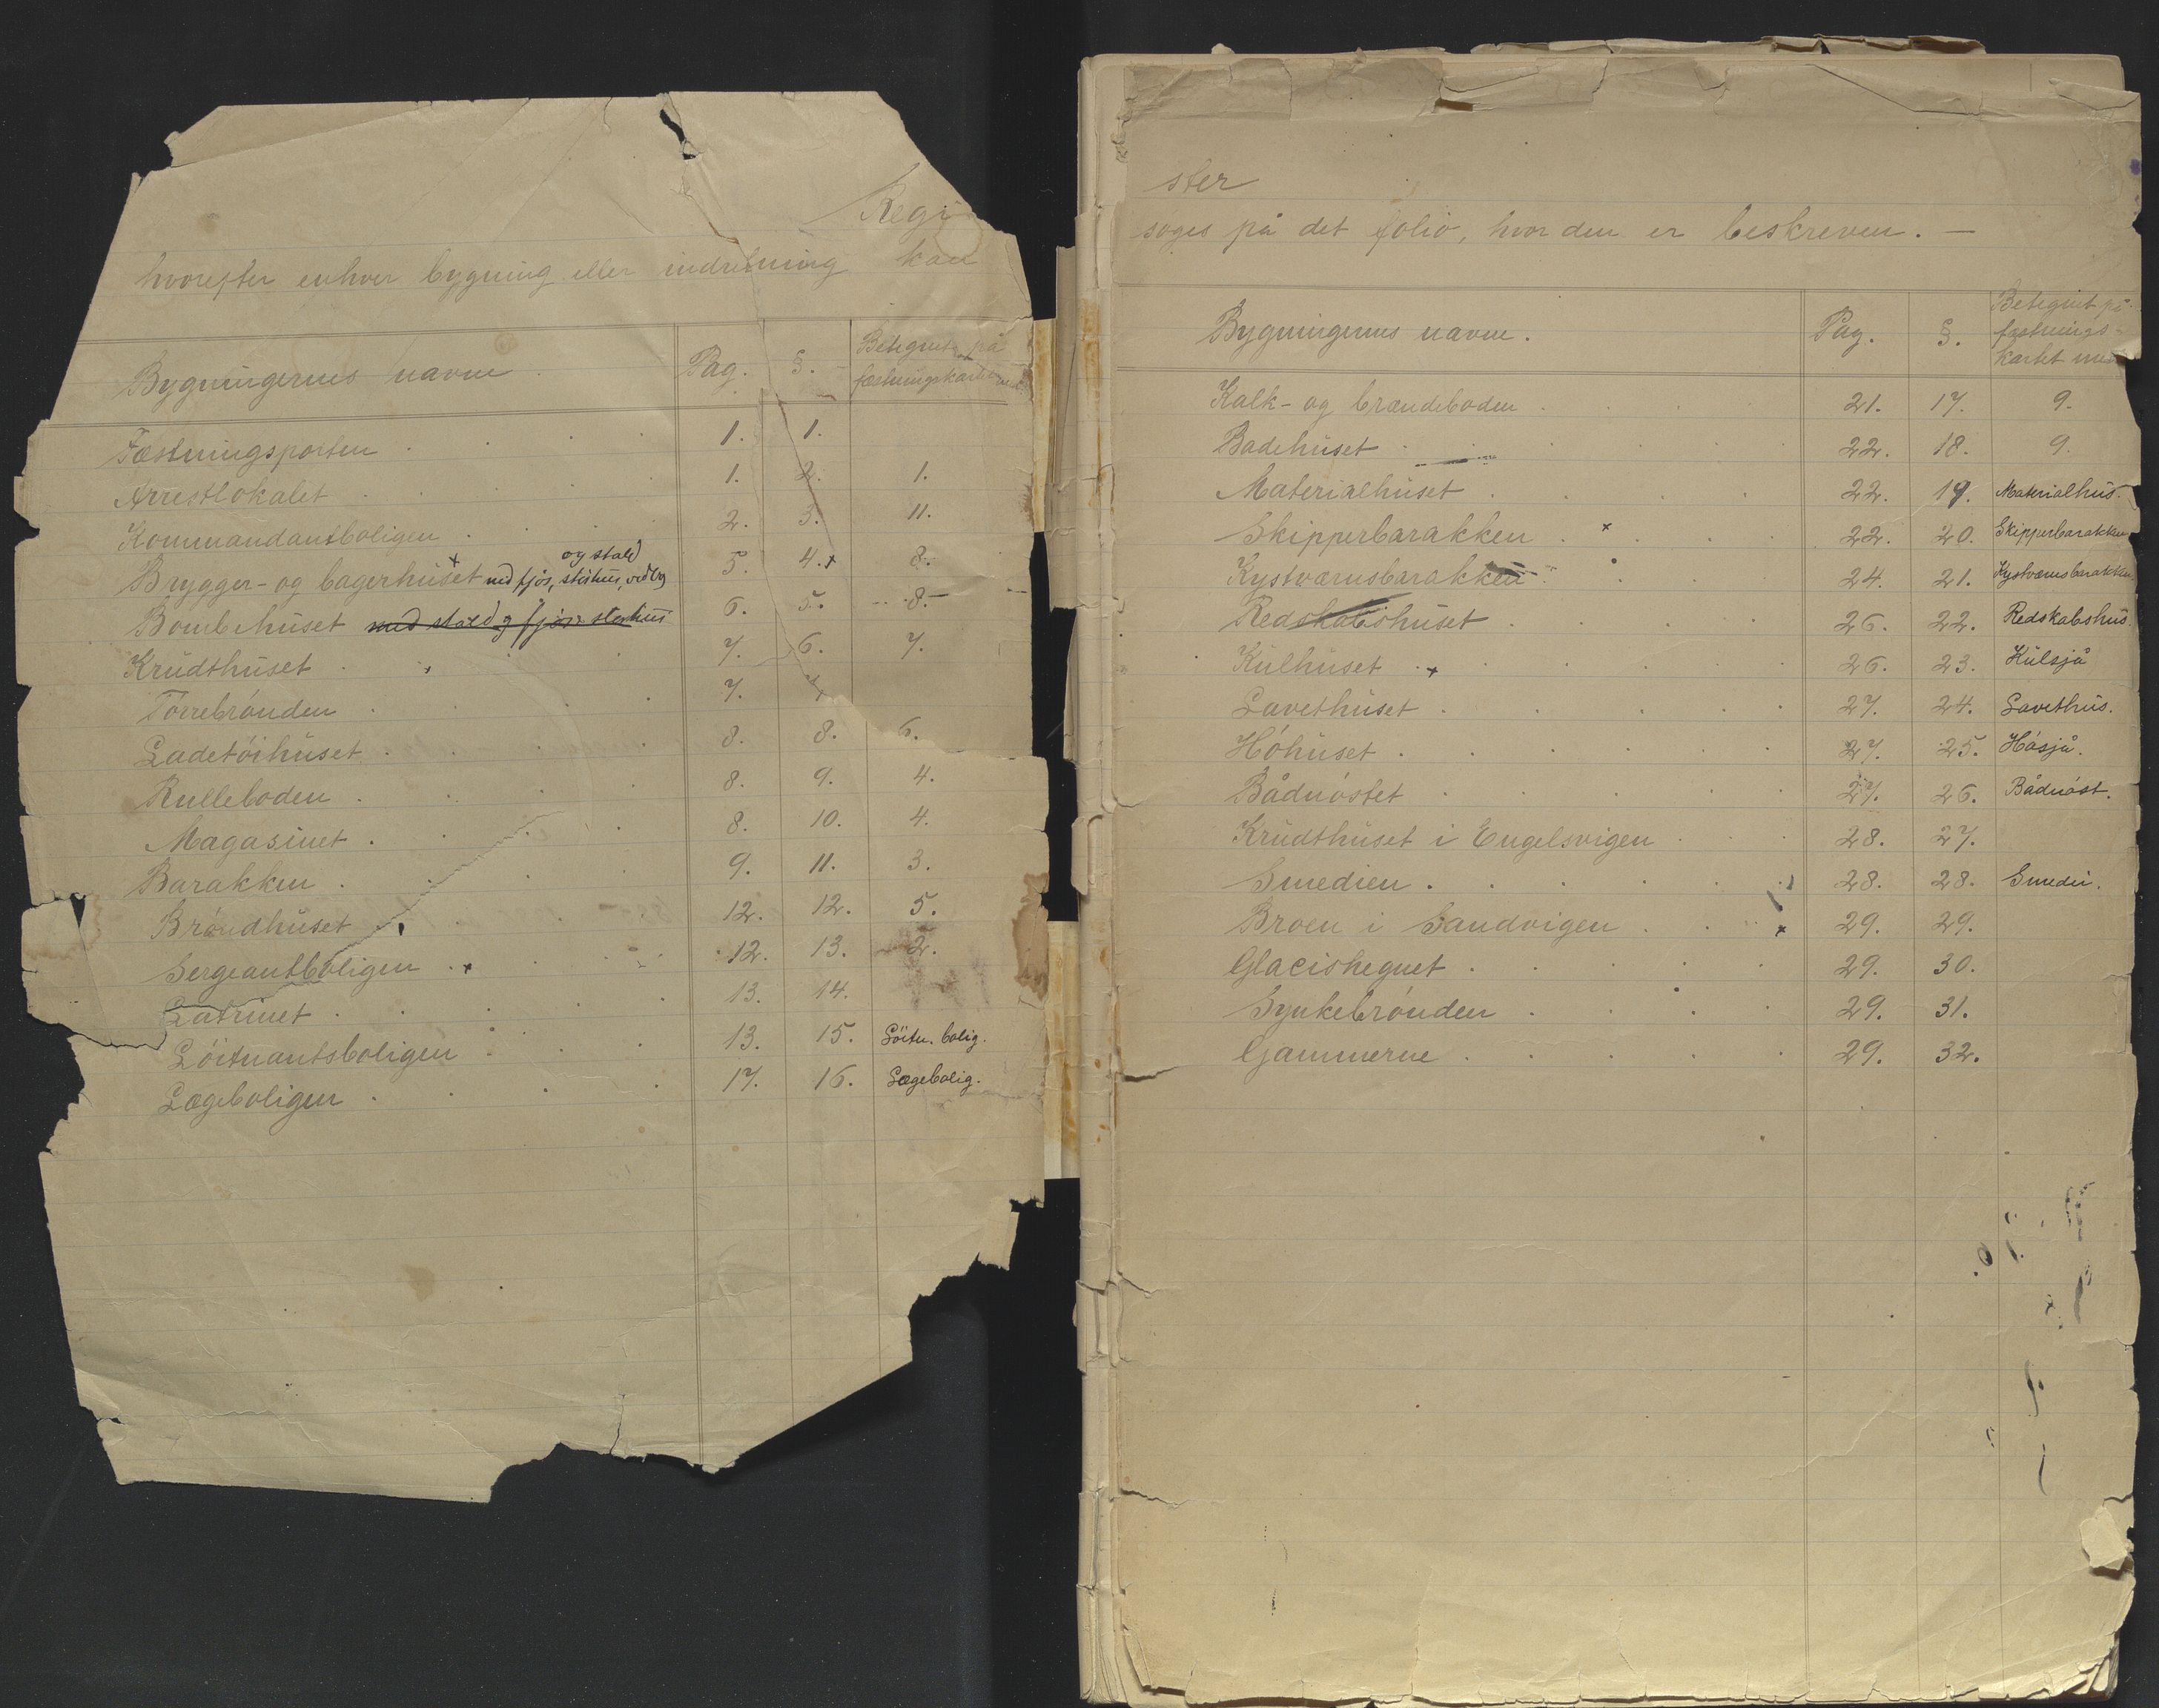 Regi
hvorefter enhver bygning eller indretning kan
Bygningernes navne. Pag. §. Betegnet på fæstningskartet med
Fæstningsporten . . . . 1. 1.
Arrestlokalet . . . . 1. 2. 1.
Kommandantboligen . . . 2. 3. 11.
og stald
Brygger- og bagerhuset med fjös, stishus, vedbg 5. 4. x 8.
Bombehuset med stald og fjös 6. 5. 8.
Krudthuset . . . 7. 6. 7.
Törrebrönden . . . 7. 7.
Ladetöihuset . . . 8. 8. 6.
Rulleboden . . . 8. 9. 4.
Magasinet . . . 8. 10. 4.
Barakken . . . 9. 11. 3.
Bröndhuset . . . 12. 12. 5.
Sergeantboligen . x . . 12. 13. 2.
Latrinet . . . 13. 14.
Löitnantsboligen . . . 13. 15. Löitn. bolig.
Lægeboligen . . . 17. 16. Lægebolig.
ster
søges på det folio, hvor den er beskreven. —
Bygningernes navne. Pag. §. Betegnet på fæstnings-
kartet med
Kalk- og brændeboden . . . 21. 17. 9.
Badehuset . . . 22. 18. 9.
Materialhuset . . . 22. 19. Materialhus.
Skipperbarakken . x . . 22. 20. Skipperbarakken
Kystværnsbarakken . . . 24. 21. Kystværnsbarakken
Redskabshuset . . . 26. 22. Redskabshus.
Kulhuset . x . . 26. 23. Kulsjå
Lavethuset . . . 27. 24. Lavethus.
Höhuset . . . 27. 25. Hösjå.
Bådnöstet . . . 27. 26. Bådnöst.
Krudthuset i Engelsvigen . . 28. 27.
Smedien . . . 28. 28. Smedie.
Broen i Sandvigen . . x 29. 29.
Glacishegnet . . . 29. 30.
Synkebrönden . . . 29. 31.
Gjammerne . . . 29. 32.